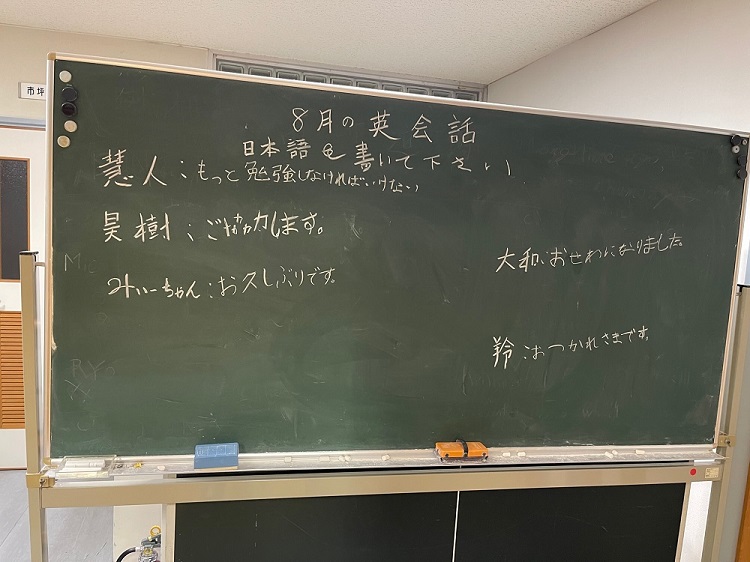 市坪
8月の英会話
日本語を書いて下さい
慧人:もっと勉強しなければいけない
昊樹:ご協力します。
みぃーちゃん:お久しぶりです。
大和:おせわになりました。
羚:おつかれさまです。